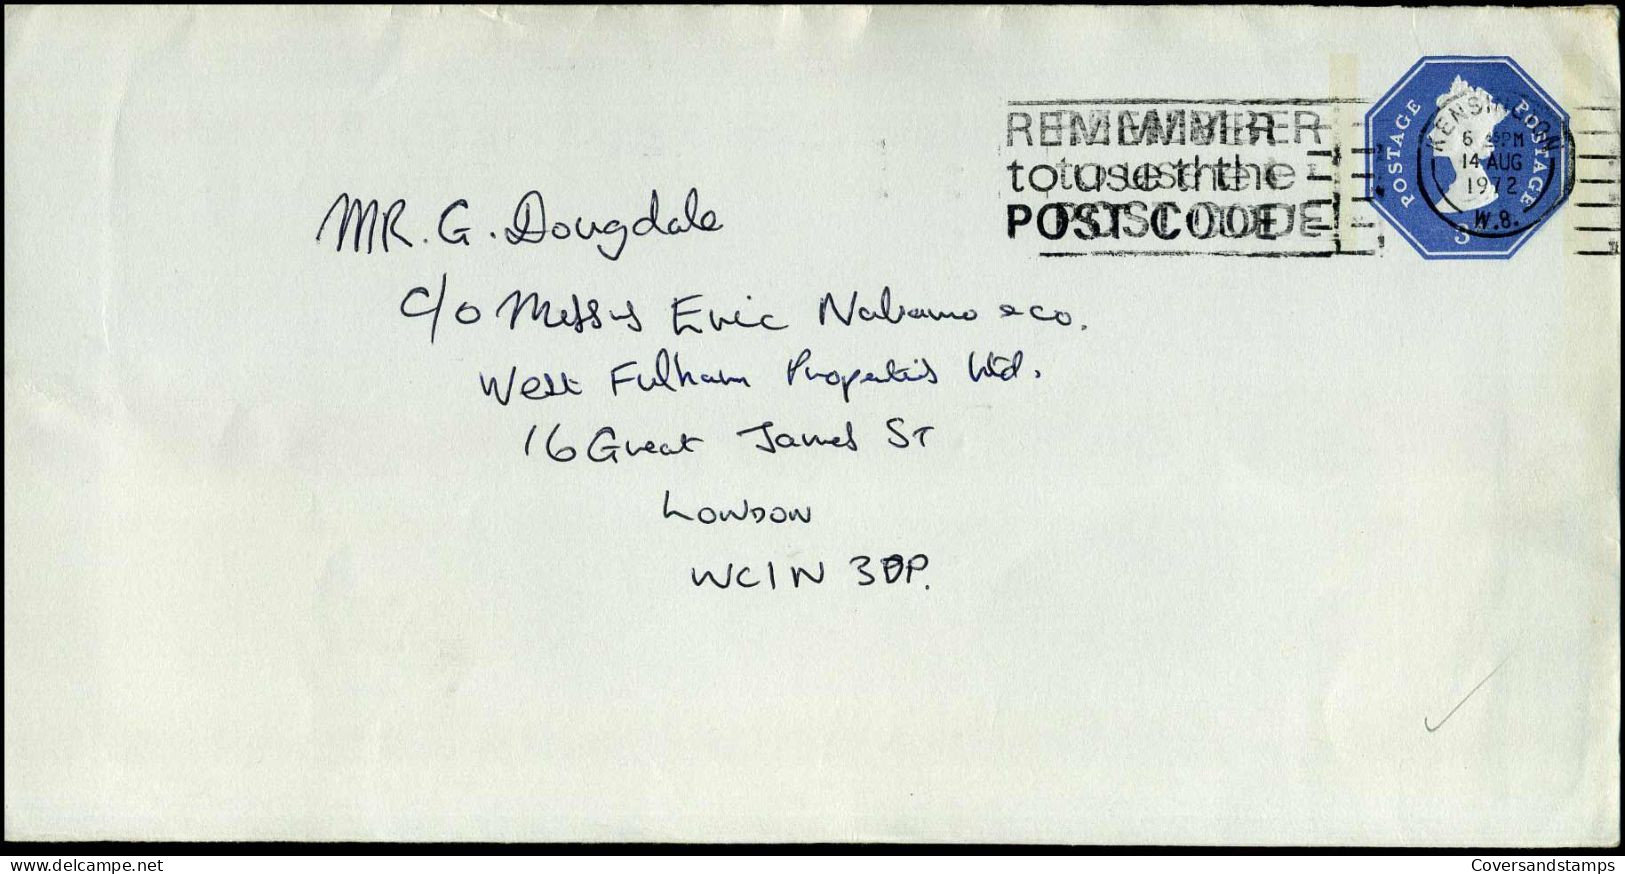 REMEMBER
to use the
POST CODE
POSTAGE POSTAGE
3
KENSINGTON
6 45PM
14 AUG
1972
W.8.
MR. G. Dougdale
c/o Messrs Eric Nabarro & co.
West Fulham Properties Ltd.
16 Great James St
LONDON
WC1N 3DP.
CoversandStamps